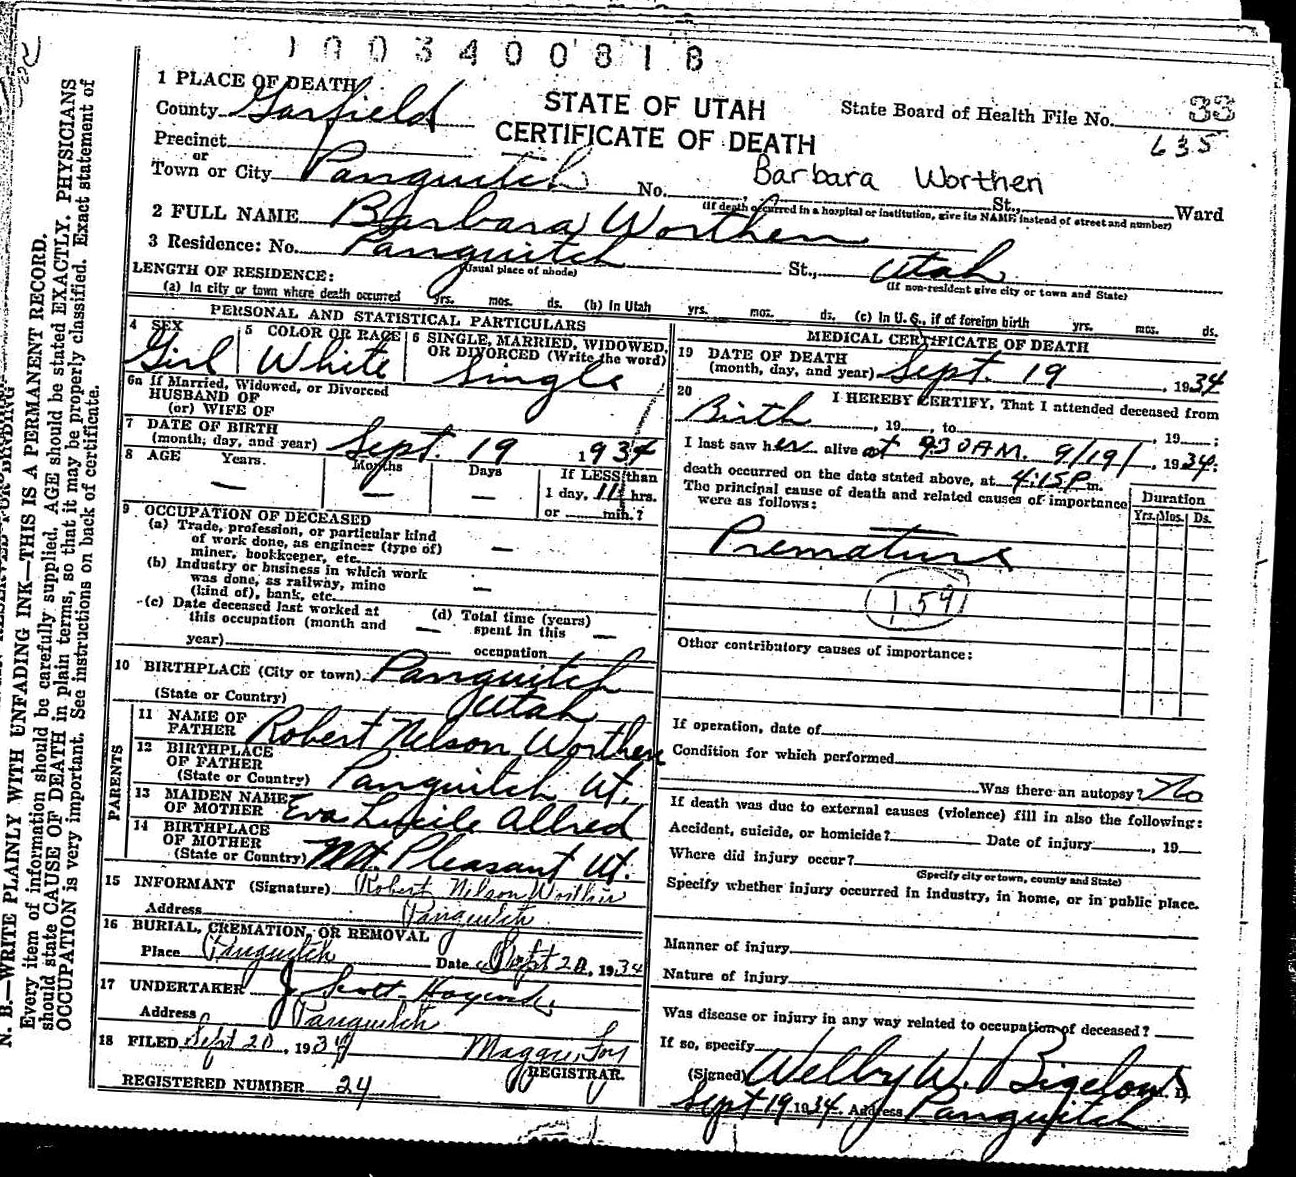 1003400818
1 PLACE OF DEATH
County Garfield
STATE OF UTAH
CERTIFICATE OF DEATH
State Board of Health File No. 33
635
Precinct
or
Town or City Panguitch No. St., Ward
Barbara Worthen
(If death occurred in a hospital or institution, give its NAME instead of street and number)
2 FULL NAME Barbara Worthen
3 Residence: No. Panguitch St., Utah
(Usual place of abode) (If non-resident give city or town and State)
LENGTH OF RESIDENCE:
(a) In city or town where death occurred yrs. mos. ds. (b) In Utah yrs. mos. ds. (c) In U. S., if of foreign birth yrs. mos. ds.
PERSONAL AND STATISTICAL PARTICULARS
4 SEX 5 COLOR OR RACE 6 SINGLE, MARRIED, WIDOWED, OR DIVORCED (Write the word)
Girl White Single
6a If Married, Widowed, or Divorced
HUSBAND OF
(or) WIFE OF
7 DATE OF BIRTH
(month, day, and year) Sept. 19 1934
8 AGE Years. Months Days If LESS than
— — — 1 day, 11 hrs.
or min.?
9 OCCUPATION OF DECEASED
(a) Trade, profession, or particular kind
of work done, as engineer (type of)
miner, bookkeeper, etc. —
(b) Industry or business in which work
was done, as railway, mine
(kind of), bank, etc. —
(c) Date deceased last worked at
this occupation (month and
year) —
(d) Total time (years)
spent in this
occupation —
10 BIRTHPLACE (City or town) Panguitch
(State or Country) Utah
PARENTS
11 NAME OF
FATHER Robert Nelson Worthen
12 BIRTHPLACE
OF FATHER
(State or Country) Panguitch Ut.
13 MAIDEN NAME
OF MOTHER Eva Lucile Allred
14 BIRTHPLACE
OF MOTHER
(State or Country) Mt. Pleasant Ut.
15 INFORMANT (Signature) Robert Nelson Worthen
Address Panguitch
16 BURIAL, CREMATION, OR REMOVAL
Place Panguitch Date Sept 20, 1934
17 UNDERTAKER J Scott
Address Panguitch
18 FILED Sept 20, 1934
REGISTRAR.
REGISTERED NUMBER 24
MEDICAL CERTIFICATE OF DEATH
19 DATE OF DEATH
(month, day, and year) Sept. 19, 1934
20 I HEREBY CERTIFY, That I attended deceased from
Birth, 19, to , 19 ;
I last saw her alive at 930 AM. 9/19/, 1934;
death occurred on the date stated above, at 4:15 P m.
The principal cause of death and related causes of importance
were as follows:
Duration
Yrs. Mos. Ds.
Premature
159
Other contributory causes of importance:
If operation, date of
Condition for which performed
Was there an autopsy? No
If death was due to external causes (violence) fill in also the following:
Accident, suicide, or homicide? Date of injury , 19
Where did injury occur?
(Specify city or town, county and State)
Specify whether injury occurred in industry, in home, or in public place.
Manner of injury
Nature of injury
Was disease or injury in any way related to occupation of deceased?
If so, specify
(Signed) Welby W. Bigelow, M. D.
Sept 19 1934. Address Panguitch
N. B.—WRITE PLAINLY WITH UNFADING INK—THIS IS A PERMANENT RECORD.
Every item of information should be carefully supplied. AGE should be stated EXACTLY. PHYSICIANS
should state CAUSE OF DEATH in plain terms, so that it may be properly classified. Exact statement of
OCCUPATION is very important. See instructions on back of certificate.